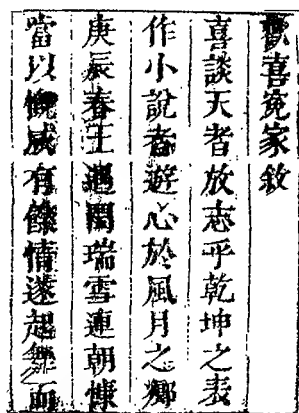 歡喜冤家敘
喜談天者放志乎乾坤之表
作小說者遊心於風月之鄉
庚辰春王遇閏瑞雪連朝慷
當以慨感有餘情遂起舞而